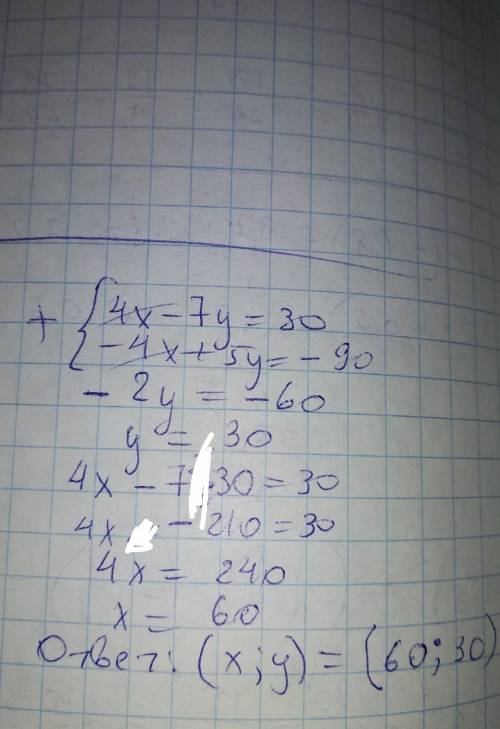 + { 4x - 7y = 30
- 4x + 5y = - 90
- 2y = - 60
y = 30
4x - 7·30 = 30
4x - 210 = 30
4x = 240
x = 60
Ответ: (x; y) = (60; 30)